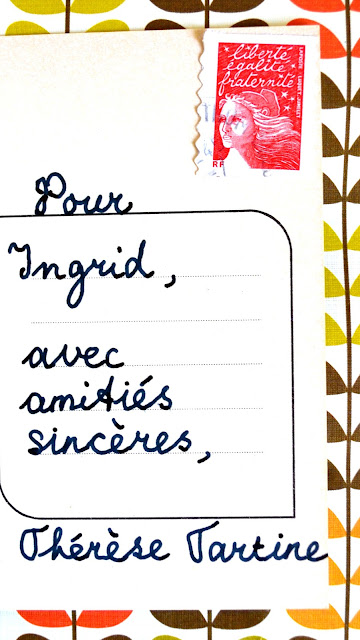 liberté
égalité
fraternité
RF
Pour
Ingrid,
avec
amitiés
sincères,
Thérèse Tartine